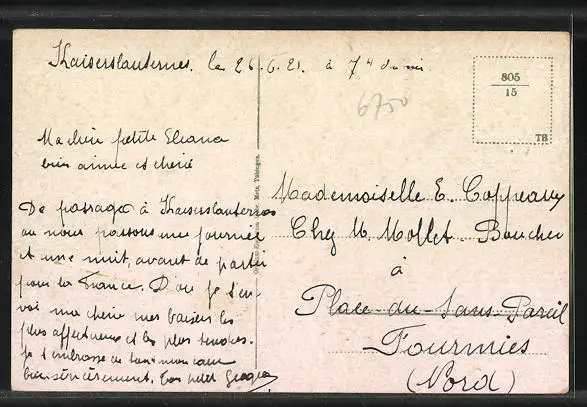 Kaiserslauternes. le 26.6.21. à 7h du soir
805
15
TB
6750
Ma chère petite Eliana
bien aimée et chérie
De passage à Kaiserslauternes
ou nous passons une journée
et une nuit, avant de partir
pour la France. D'ou je t'en-
voi ma chérie mes baisers les
plus affectueux et les plus tendres.
Je t'embrasse de tout mon cœur
bien sincèrement. ton petit
Mademoiselle E. Coppeaux
Chez M. Mollet. Boucher
à
Place du Sans Pareil
Fourmies
(Nord)
Metz, Tübingen.